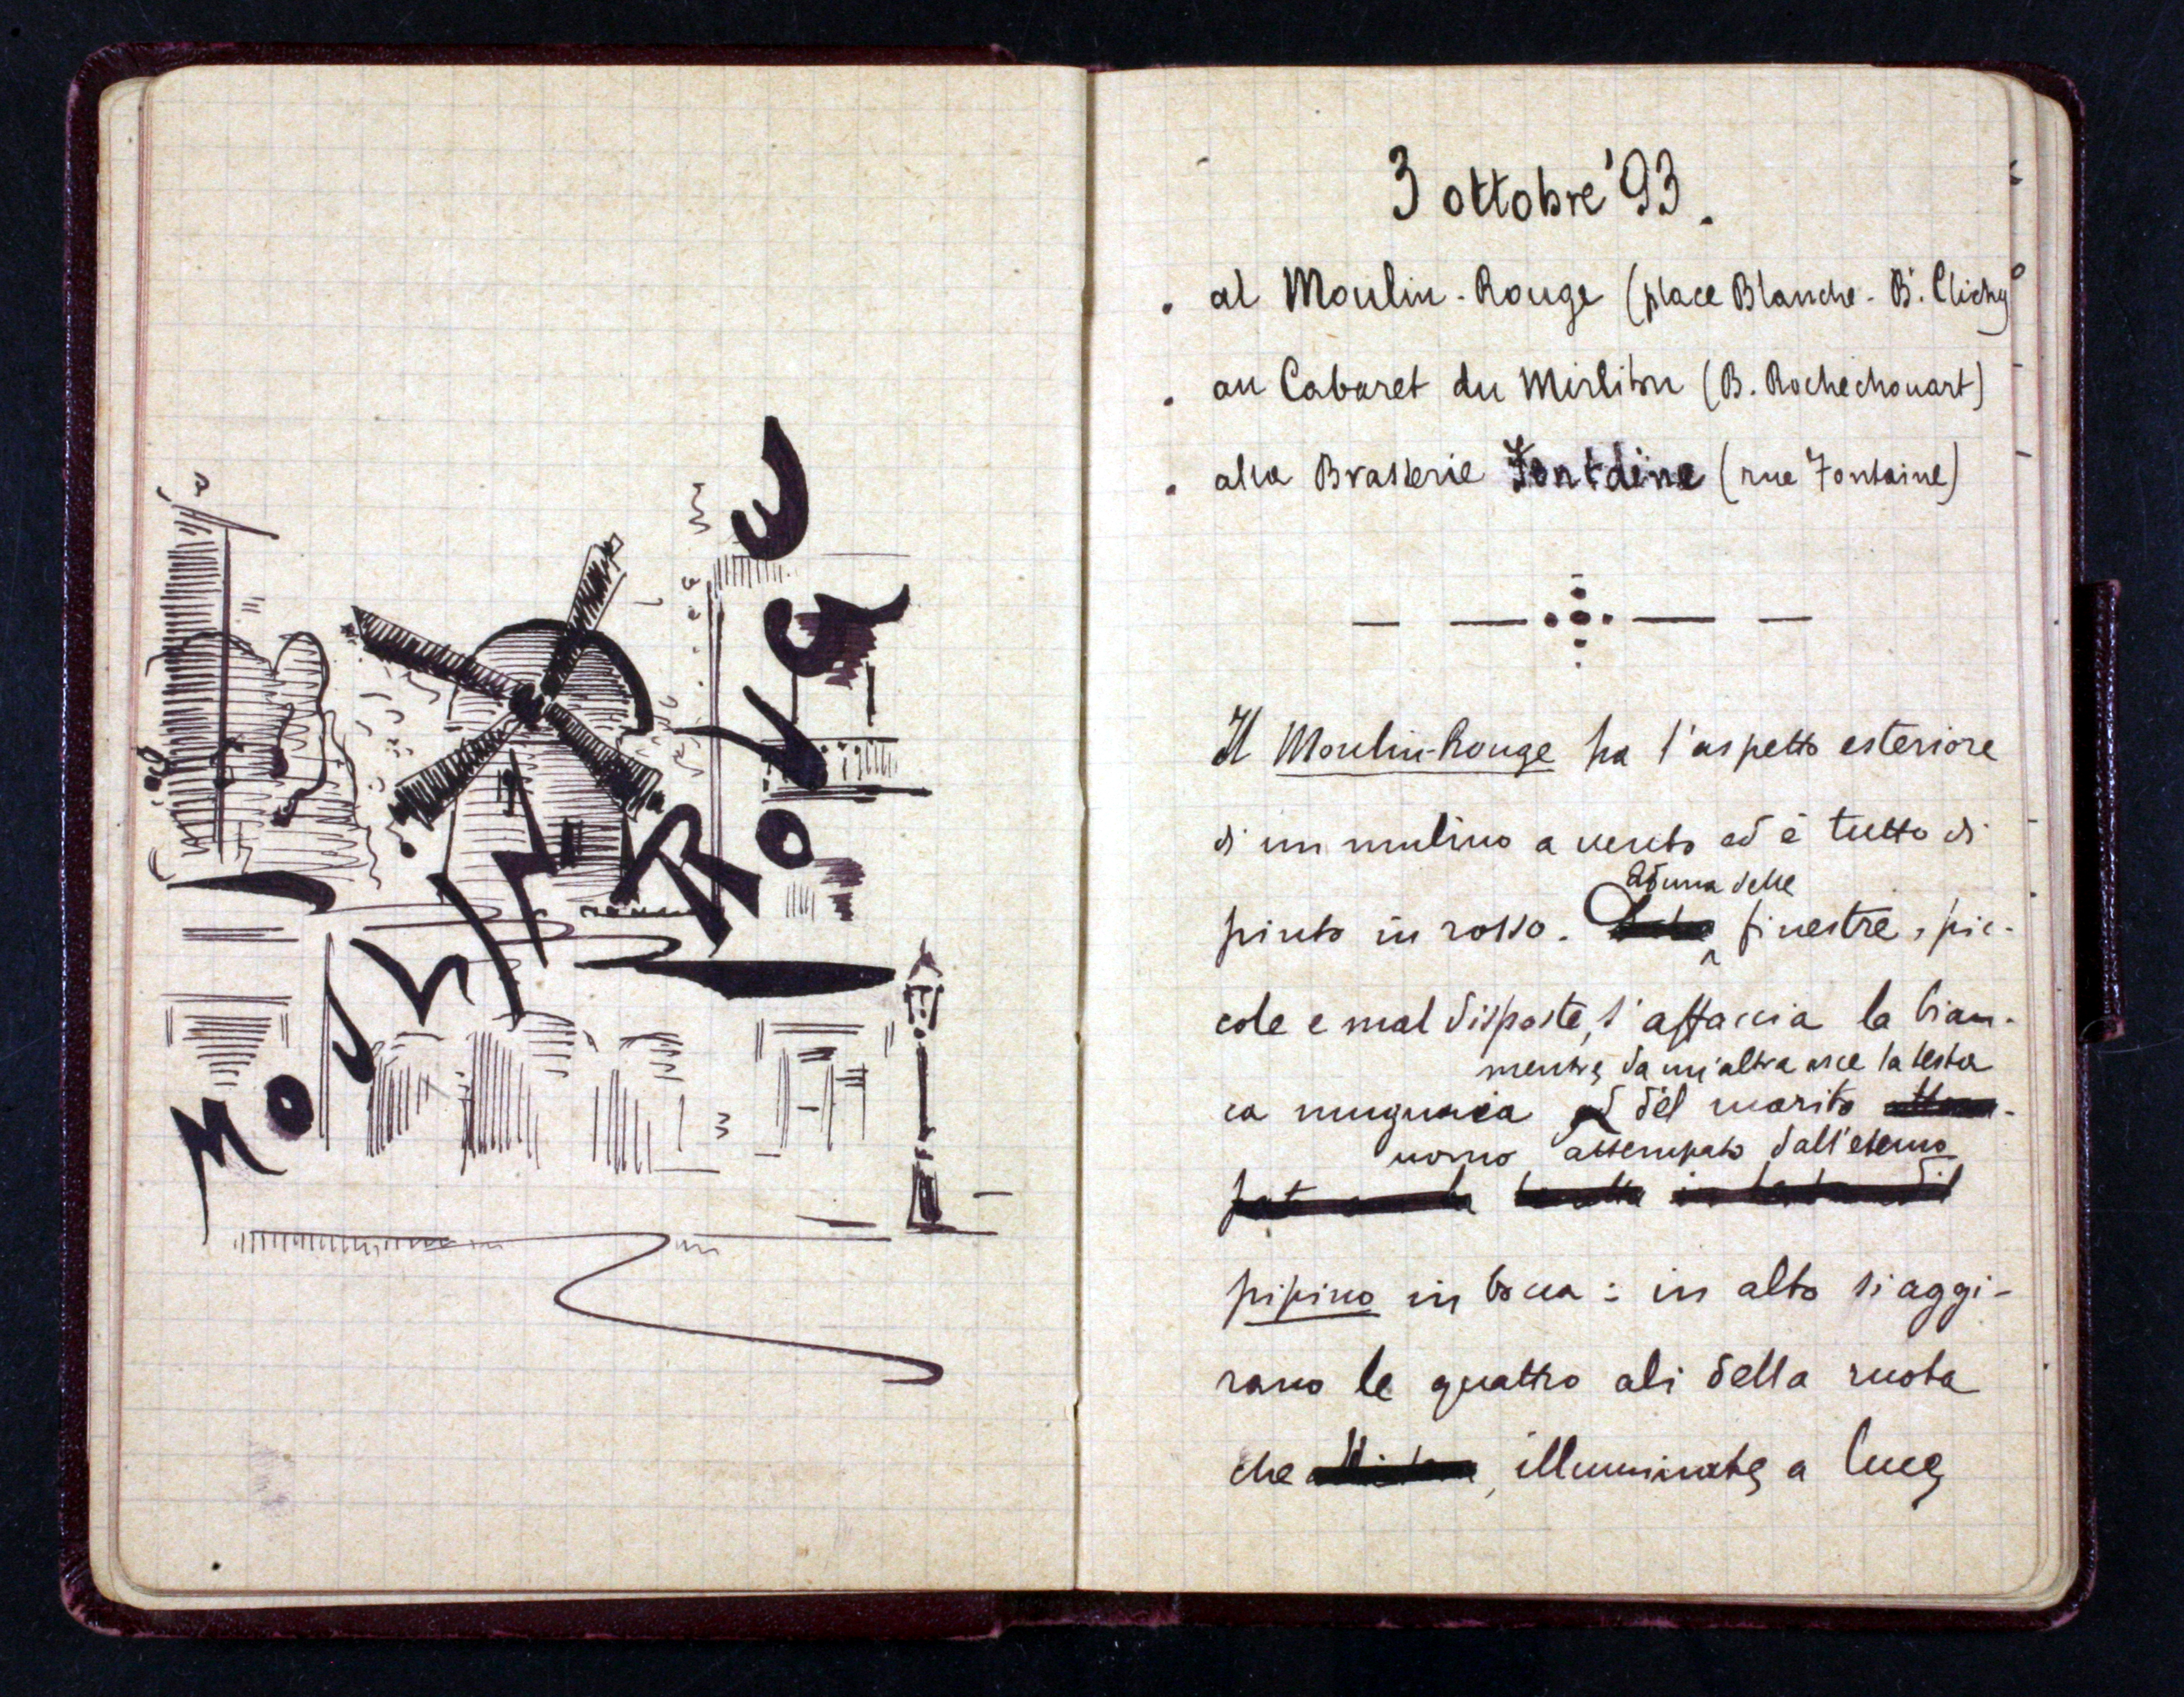 MOULIN ROUGE
3 ottobre '93.
. al Moulin-Rouge (place Blanche - B.d Clichy)
. au Cabaret du Mirliton (B. Rochechouart)
. alla Brasserie Fontaine (rue Fontaine)
Il Moulin-Rouge ha l'aspetto esteriore
di un mulino a vento ed è tutto di
Ad una delle
pinto in rosso. finestre, pic-
cole e mal disposte, s'affaccia la bian-
mentre da un'altra esce la testa
ca mugnaia del marito
uomo attempato dall'eterno
pipino in bocca: in alto si aggi-
rano le quattro ali della ruota
che, illuminate a luce